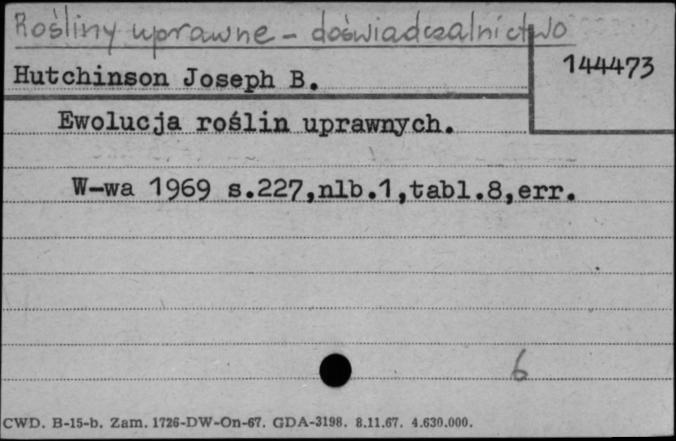 Rośliny uprawne - doświadczalnictwo
144473
Hutchinson Joseph B.
Ewolucja roślin uprawnych.
W-wa 1969 s.227,nlb.1,tabl.8,err.
6
CWD. B-15-b. Zam. 1726-DW-On-67. GDA-3198. 8.11.67. 4.630.000.